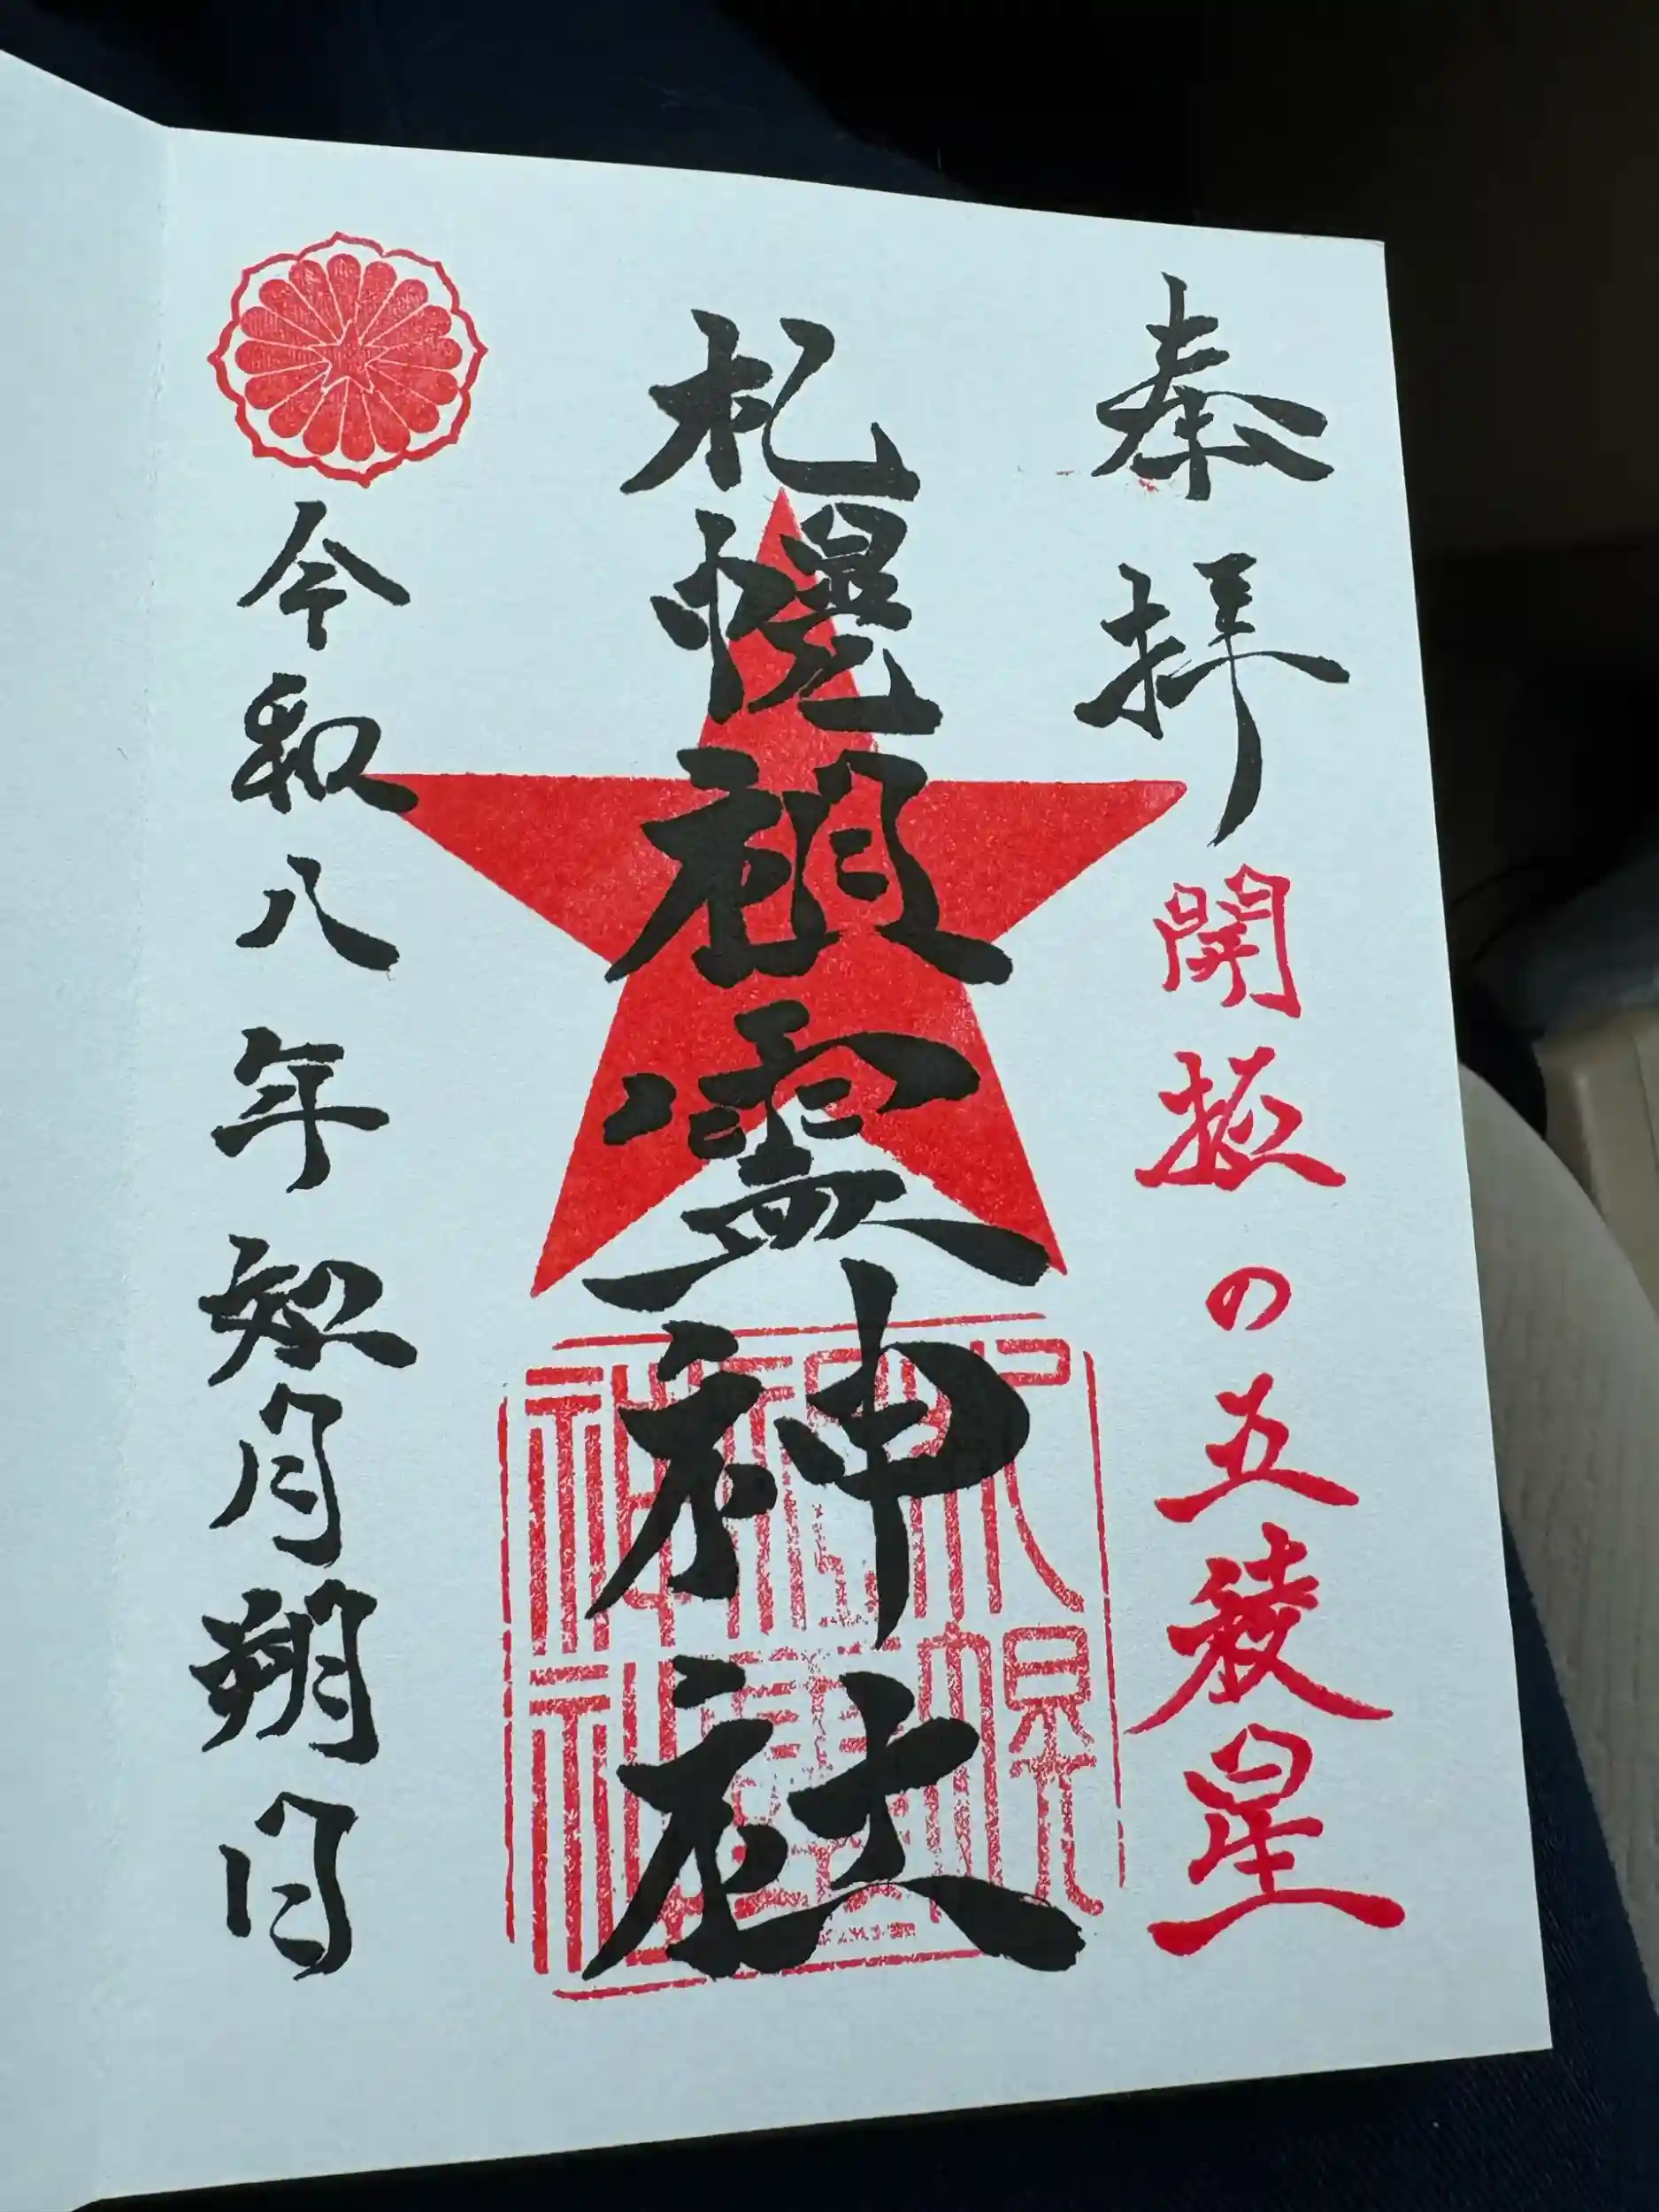 奉拝 開拓の五稜星
札幌祖霊神社
令和八年如月朔日
札幌
祖霊
神社